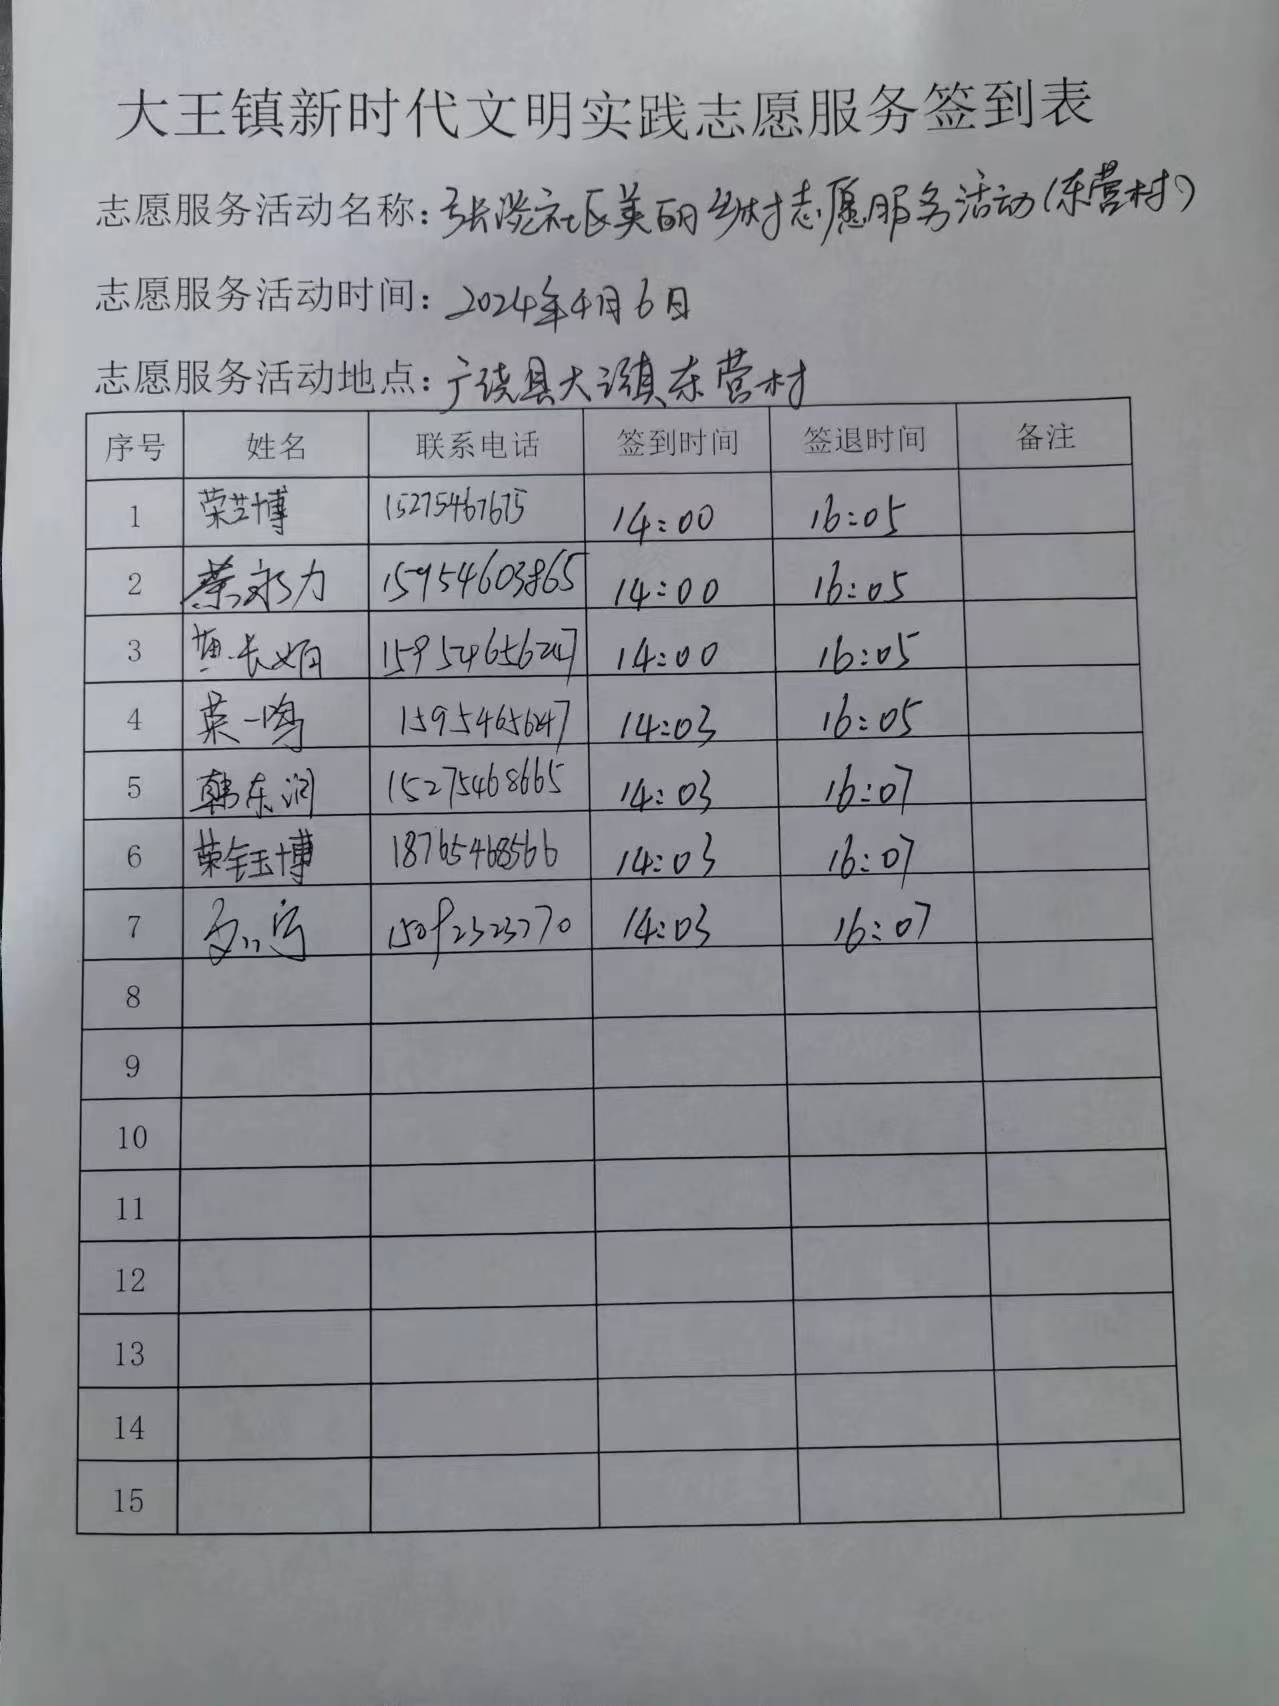 大王镇新时代文明实践志愿服务签到表
志愿服务活动名称:张淡社区美丽乡村志愿服务活动(东营村)
志愿服务活动时间:2024年4月6日
志愿服务活动地点:广饶县大王镇东营村
序号 姓名 联系电话 签到时间 签退时间 备注
1 荣芝博 15275467675 14:00 16:05
2 荣永力 15954603865 14:00 16:05
3 长娟 15954656247 14:00 16:05
4 荣一鸣 15954656247 14:03 16:05
5 韩东润 15275468665 14:03 16:07
6 荣钰博 18765468566 14:03 16:07
7 15092323770 14:03 16:07
8
9
10
11
12
13
14
15